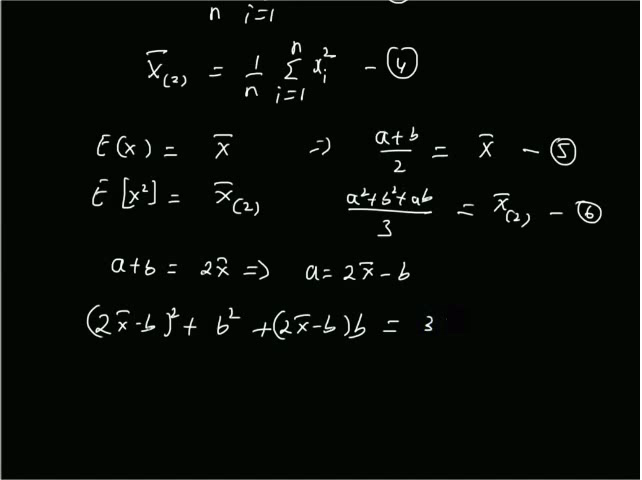 n i=1
x̄₍₂₎ = 1/n Σⁿᵢ₌₁ xᵢ² - ④
E(x) = x̄ => (a+b)/2 = x̄ - ⑤
E[x²] = x̄₍₂₎ (a²+b²+ab)/3 = x̄₍₂₎ - ⑥
a+b = 2x̄ => a = 2x̄ - b
(2x̄-b)² + b² + (2x̄-b)b = 3